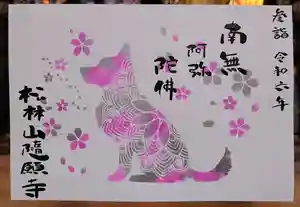 参詣 令和六年
南無
阿弥
陀佛
松林山隨願寺